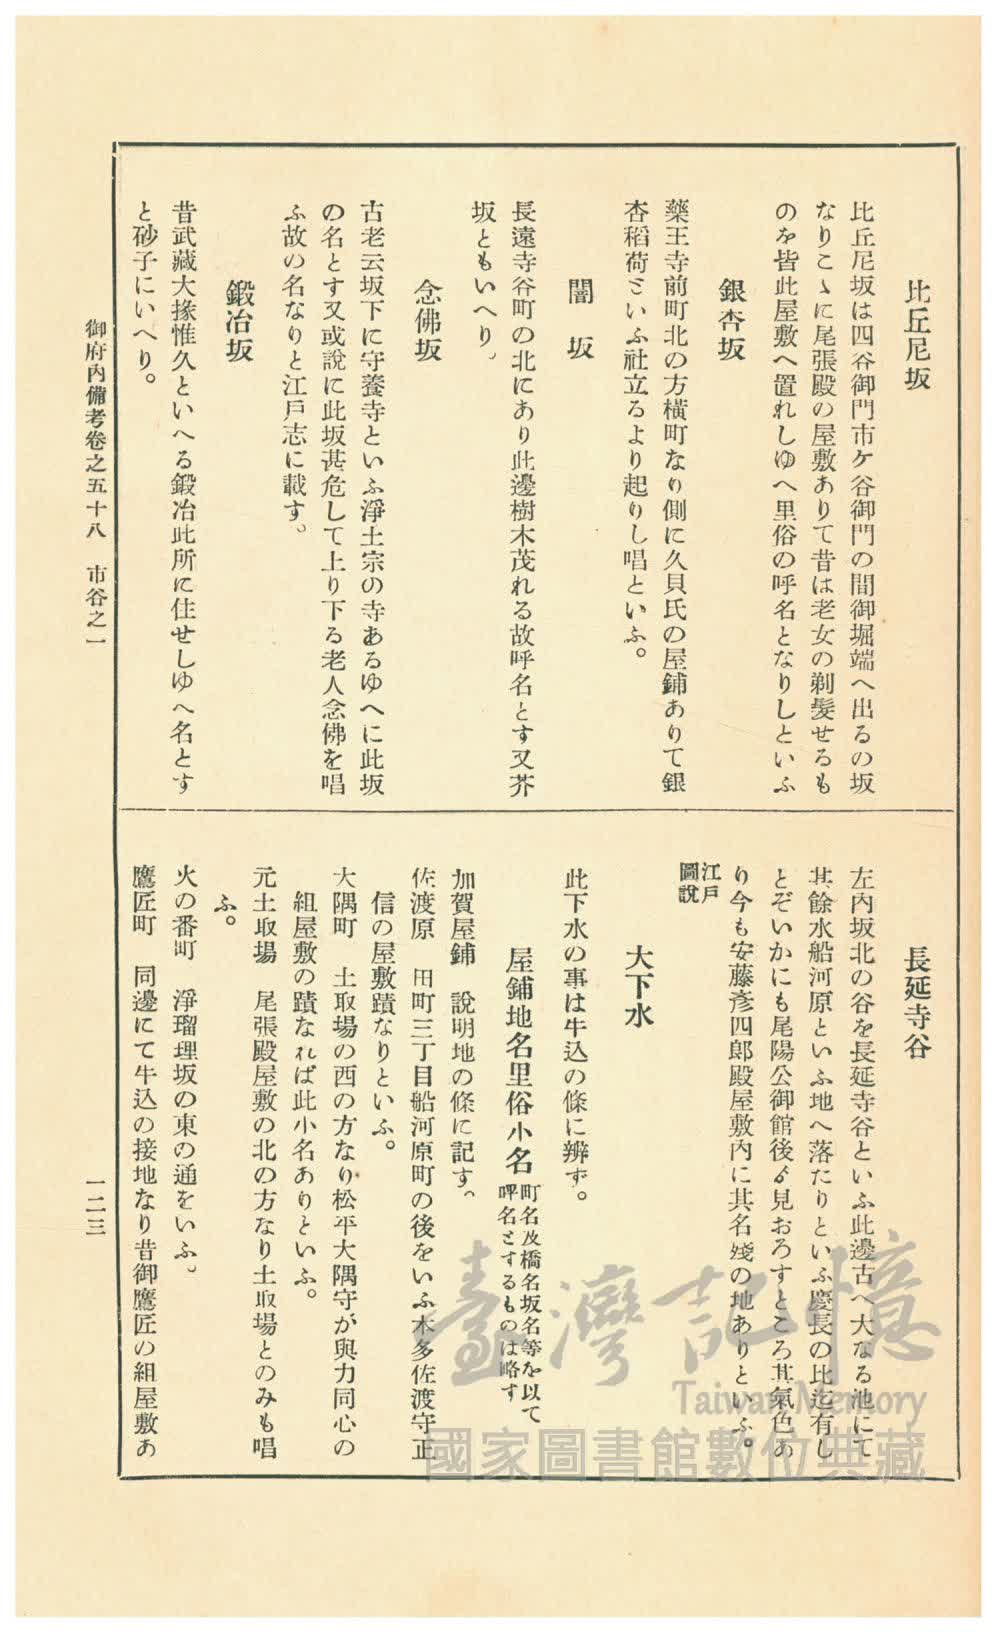 比丘尼坂
比丘尼坂は四谷御門市ケ谷御門の間御堀端へ出るの坂
なりこゝに尾張殿の屋敷ありて昔は老女の剃髮せるも
のを皆此屋敷へ置れしゆへ里俗の呼名となりしといふ
銀杏坂
藥王寺前町北の方橫町なり側に久貝氏の屋鋪ありて銀
杏稻荷といふ社立るより起りし唱といふ。
闇坂
長遠寺谷町の北にあり此邊樹木茂れる故呼名とす又芥
坂ともいへり。
念佛坂
古老云坂下に守養寺といふ淨土宗の寺あるゆへに此坂
の名とす又或說に此坂甚危して上り下る老人念佛を唱
ふ故の名なりと江戶志に載す。
鍛冶坂
昔武藏大掾惟久といへる鍛冶此所に住せしゆへ名とす
と砂子にいへり。
長延寺谷
左內坂北の谷を長延寺谷といふ此邊古へ大なる池にて
其餘水船河原といふ地へ落たりといふ慶長の比迄有し
とぞいかにも尾陽公御館後ゟ見おろすところ其氣色あ
り今も安藤彥四郎殿屋敷內に其名殘の地ありといふ。
江戶
圖說
大下水
此下水の事は牛込の條に辨ず。
屋鋪地名里俗小名 町名及橋名坂名等を以て
呼名とするものは略す
加賀屋鋪 說明地の條に記す。
佐渡原 田町三丁目船河原町の後をいふ本多佐渡守正
信の屋敷蹟なりといふ。
大隅町 土取場の西の方なり松平大隅守が與力同心の
組屋敷の蹟なれば此小名ありといふ。
元土取場 尾張殿屋敷の北の方なり土取場とのみも唱
ふ。
火の番町 淨瑠理坂の東の通をいふ。
鷹匠町 同邊にて牛込の接地なり昔御鷹匠の組屋敷あ
御府內備考卷之五十八 市谷之一
一二三
臺灣記憶
Taiwan Memory
國家圖書館數位典藏